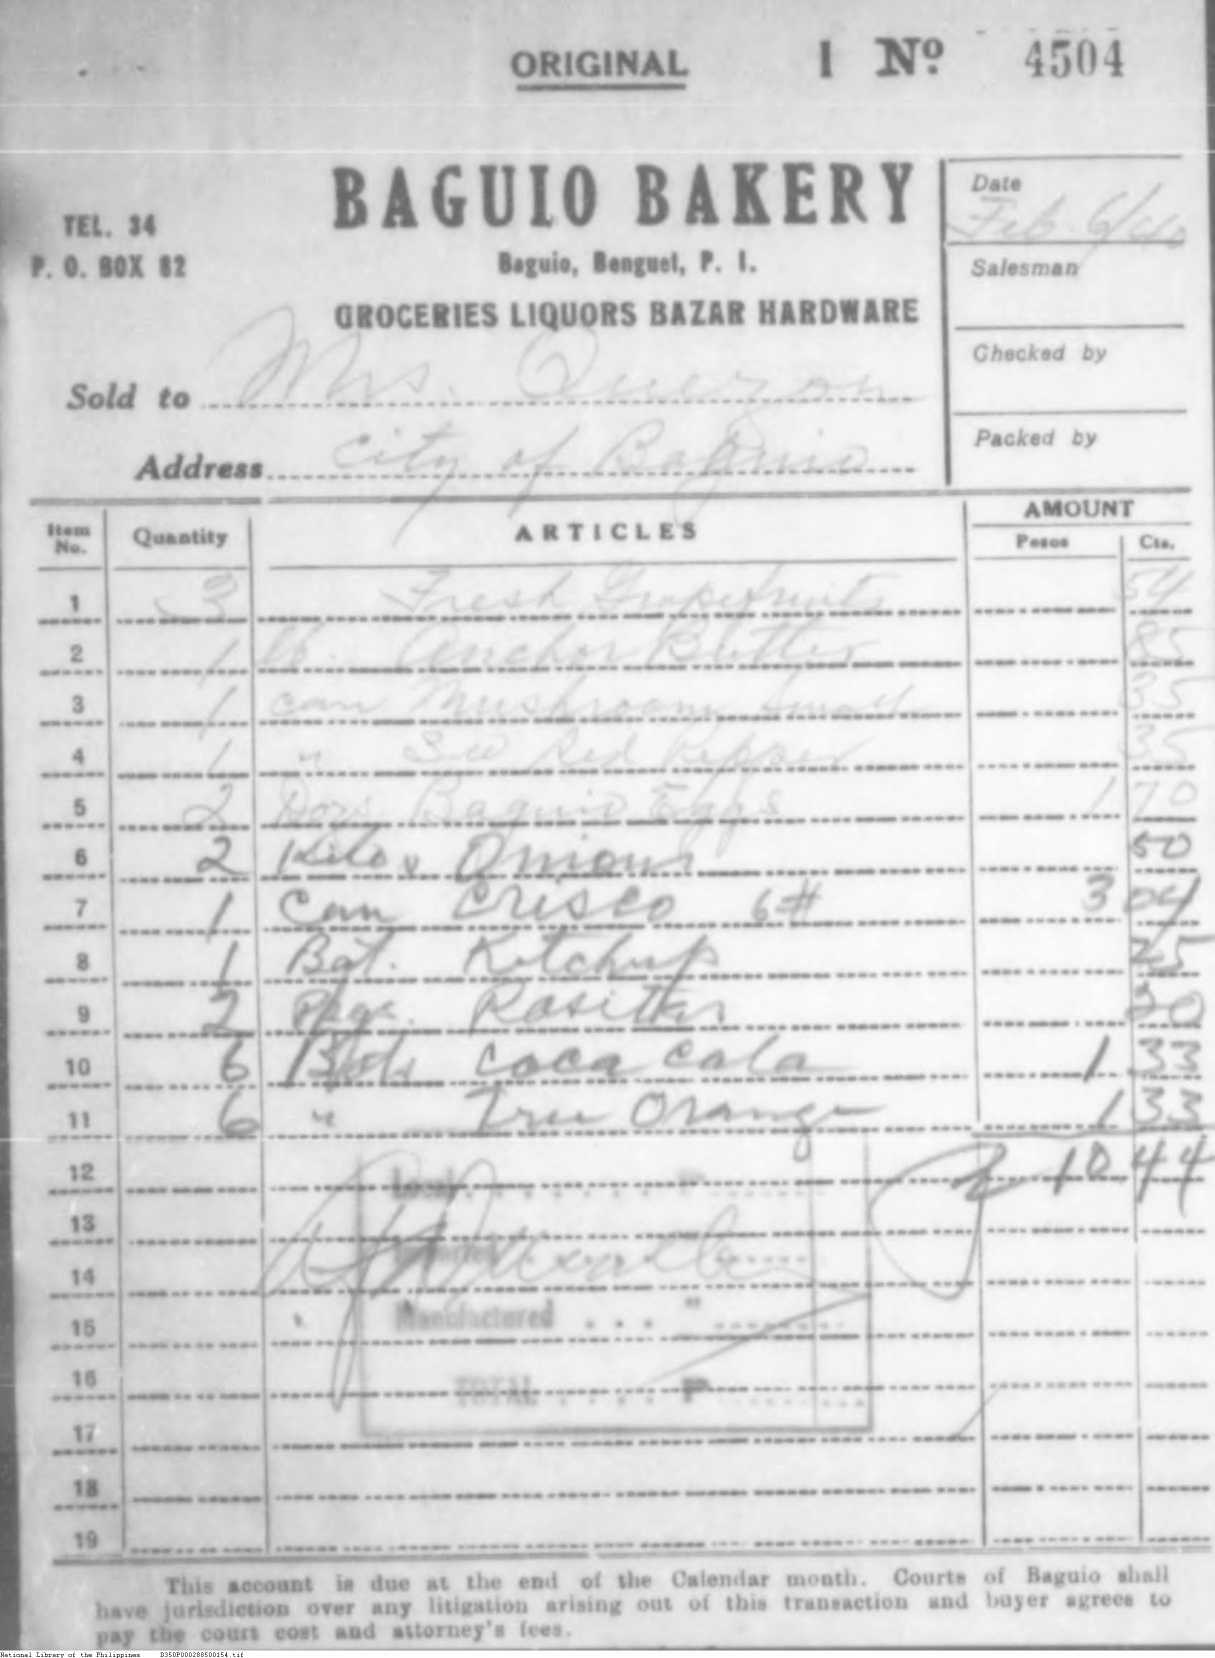 ORIGINAL 1 No. 4504
BAGUIO BAKERY
TEL. 34
P. O. BOX 82
Baguio, Benguet, P. I.
GROCERIES LIQUORS BAZAR HARDWARE
Date
Feb. 6/40
Salesman
Checked by
Packed by
Sold to Mrs. Quezon
Address City of Baguio
Item No. Quantity ARTICLES AMOUNT Pesos Cts.
1 3 Fresh Grapefruits 54
2 1 lb. Anchor Butter 85
3 1 can Mushroom small 35
4 1 " Red Pepper 35
5 2 Doz. Baguio Eggs 1 70
6 2 Kilos Onions 50
7 1 Can Crisco 6# 3 04
8 1 Bot. Ketchup 25
9 2 Pkge. 20
10 6 Bots Coca Cola 1 33
11 6 " Tru Orange 1 33
12 Local . . . . . . . " 10 44
13
14
15 Manufactured . . . "
16 TOTAL . . . . P
17
18
19
This account is due at the end of the Calendar month. Courts of Baguio shall
have jurisdiction over any litigation arising out of this transaction and buyer agrees to
pay the court cost and attorney's fees.
National Library of the Philippines B350P000288500154.tif